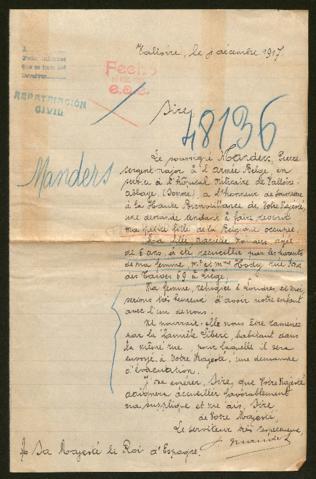 Valloire, le 1 décembre 1917
REPATRIACIÓN
CIVIL
Sire,
48136
Manders
Le soussigné Manders, Pierre
sergent-major à l'armée Belge, en
service à l'Hôpital Militaire de Valloire-
abbaye (Somme) a l'honneur de soumettre
à la Haute Bienveillance de Votre Majesté,
une demande tendant à faire revenir
ma petite fille de la Belgique occupée.
agée
de 6 ans, a été recueillie par les parents
de ma femme, Mr et Mme Hody, rue
69 à Liège.
Ma femme, refugiée à Londres, et moi
serions très heureux d'avoir notre enfant
avec l'un de nous.
Ne pourrait-elle nous être ramenée
par la famille habitant dans
la même rue pour laquelle il sera
envoyé, à Votre Majesté, une demande
d'évacuation.
J'ose espérer, Sire, que Votre Majesté
daignera accueillir favorablement
ma supplique et me dis, Sire
de Votre Majesté,
Le serviteur très respectueux,
A Sa Majesté le Roi d'Espagne,